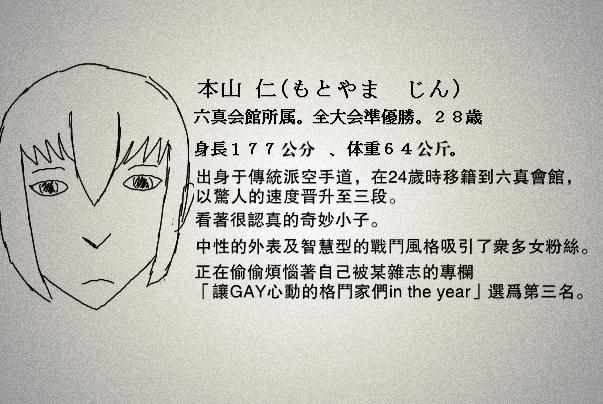 本山 仁(もとやま　じん)
六真会館所属。全大会準優勝。２８歳
身長１７７公分　、体重６４公斤。
出身于傳統派空手道，在24歲時移籍到六真會館，
以驚人的速度晋升至三段。
看著很認真的奇妙小子。
中性的外表及智慧型的戰鬥風格吸引了衆多女粉絲。
正在偷偷煩惱著自己被某雜志的專欄
「讓GAY心動的格鬥家們in the year」選爲第三名。